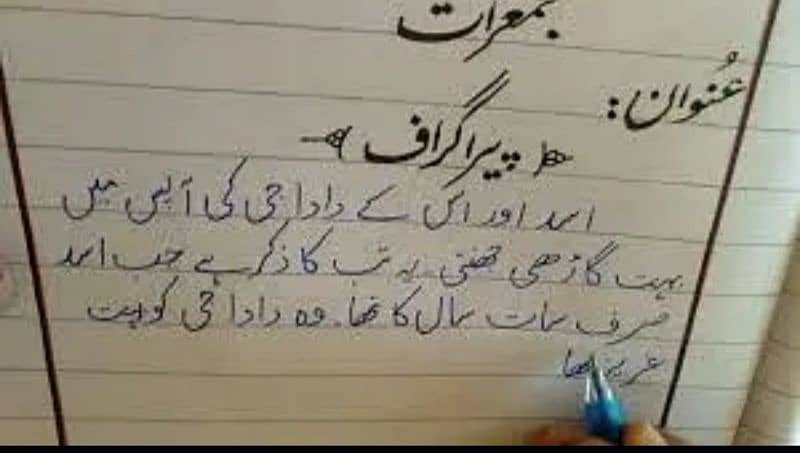 جمعرات
عُنوان:
پیراگراف
اسد اور اس کے دادا جی کی آپس میں
بہت گاڑھی چھنتی یہ تب کا ذکر ہے جب اسد
صرف سات سال کا تھا۔ وہ دادا جی کو بہت
عزیز تھا